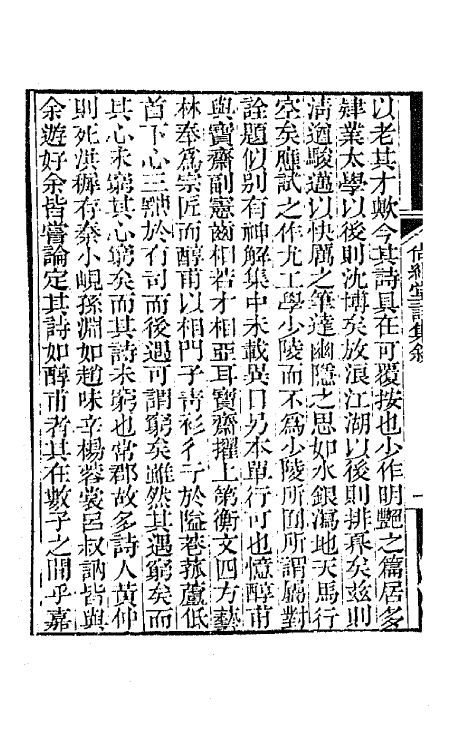 尚絅堂詩集敘
以老其才歟今其詩具在可覆按也少作明艷之篇居多
肄業太學以後則沈博矣放浪江湖以後則排奡矣茲則
清遒駿邁以快厲之筆達幽隱之思如水銀瀉地天馬行
空矣應試之作尤工學少陵而不為少陵所囿所謂屬對
詮題似别有神解集中未載異日另本單行可也憶醇甫
與寶齋副憲齒相若才相亞耳寶齋擢上第衡文四方藝
林奉爲崇匠而醇甫以相門子靑衫彳亍於隘巷菰蘆低
首下心三黜於有司而後遇可謂窮矣雖然其遇窮矣而
其心未窮其心窮矣而其詩未窮也常郡故多詩人黃仲
則死洪稺存秦小峴孫淵如趙味辛楊蓉裳呂叔訥皆與
余遊好余皆嘗論定其詩如醇甫者其在數子之間乎嘉